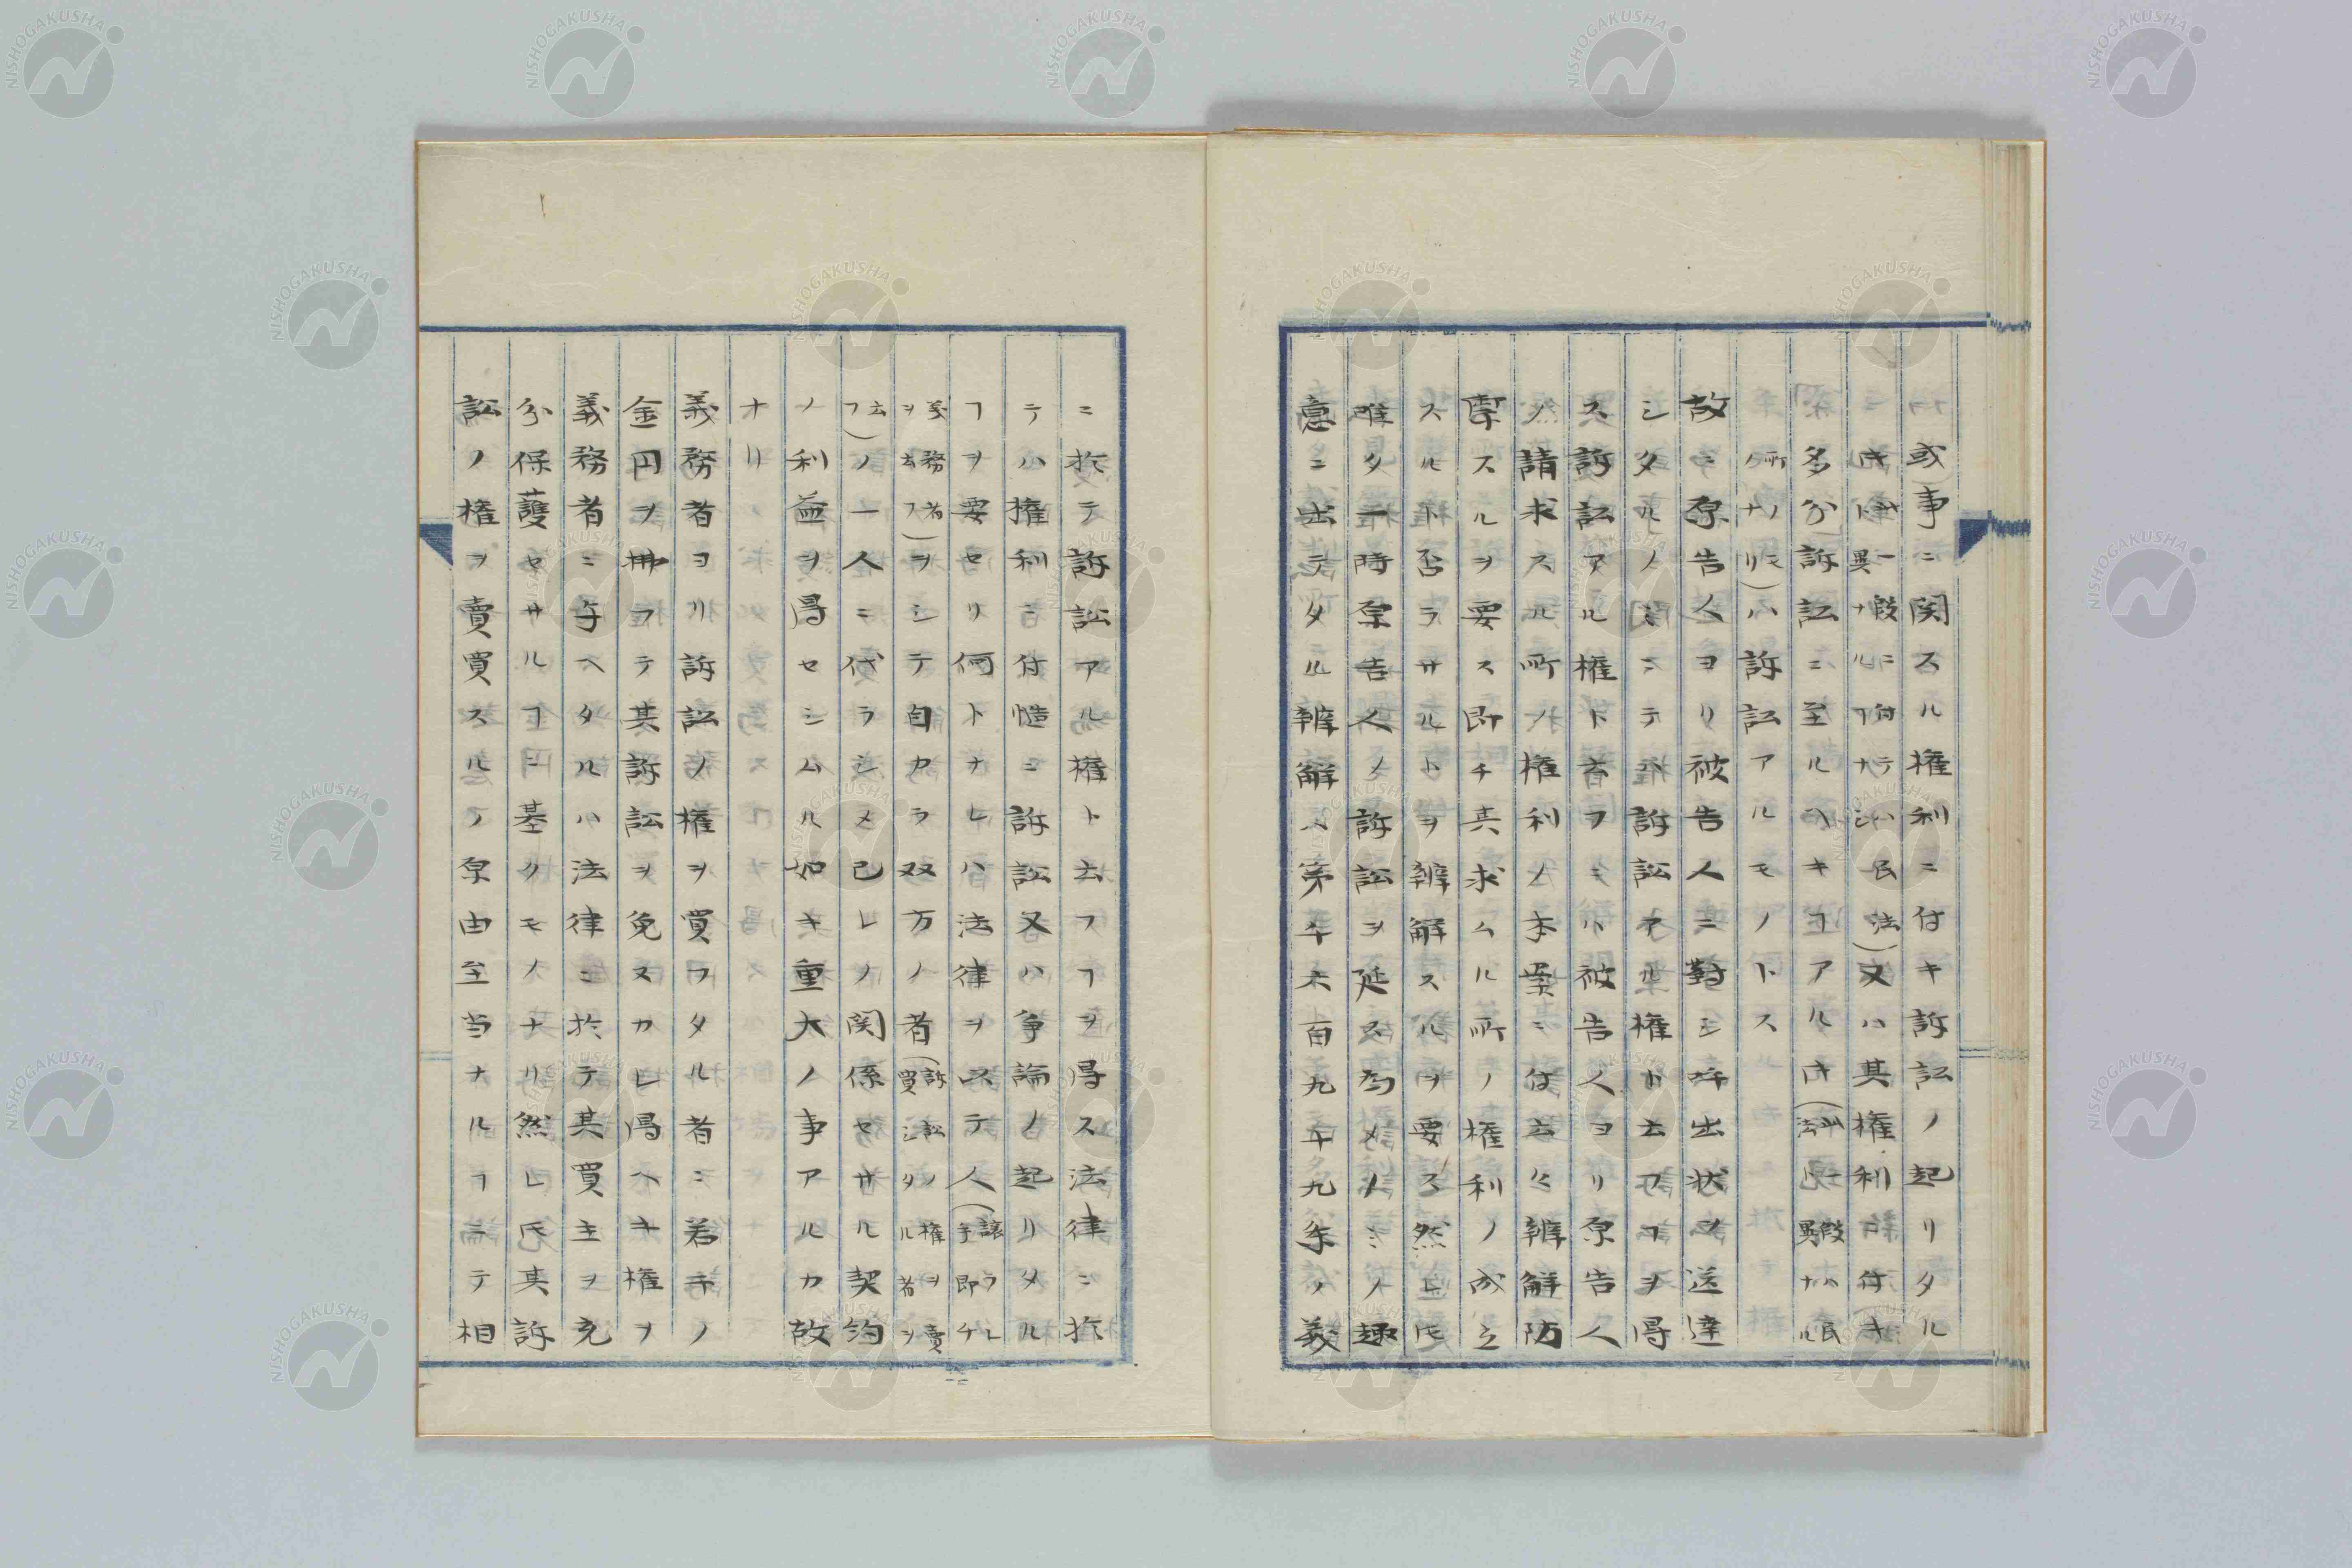 或)事ニ関スル権利ニ付キ訴訟ノ起リタル
民法)又ハ其権利ニ付キ
多分訴訟ニ至ルヘキヿアル
ハ訴訟アルモノトス
故ニ原告人ヨリ被告人ニ對シ呼出状ヲ送達
シタルノミニテハ訴訟アル権ト云フヿヲ得
ス訴訟アル権ト云フニハ被告人ヨリ原告人
ノ請求スル所ノ権利ノ本案ニ付云々辨解防
禦スルヲ要ス即チ其求ムル所ノ権利ノ成立
スルト否ラサルトヲ辨解スルヲ要ス然レ𪜈
唯タ一時原告人ノ訴訟ヲ延ス為メノミノ趣
意ニ出テタル辨解ハ第千六百九十九条ノ義
ニ於テ訴訟アル権ト云フヿヲ得ス法律ニ於
テハ権利ニ付慥ニ訴訟又ハ争論ノ起リタル
ヿヲ要セリ何トナレハ法律ヲ以テ人(譲ラレ手即チ
義務者ヲ云フ)ヲシテ自カラ双方ノ者(訴訟ノ権ヲ賣買シタル者ヲ
云フ)ノ一人ニ代ラシメ己レノ関係セサル契約
ノ利益ヲ得セシムル如キ重大ノ事アルカ故
ナリ
義務者ヨリ訴訟ノ権ヲ買フタル者ニ若干ノ
金円ヲ拂フテ其訴訟ヲ免スカレ得ヘキ権ヲ
義務者ニ与ヘタルハ法律ニ於テ其買主ヲ充
分保護セサルヿニ基クモノナリ然レ𪜈其訴
訟ノ権ヲ賣買スルノ原由至当ナルヿニテ相